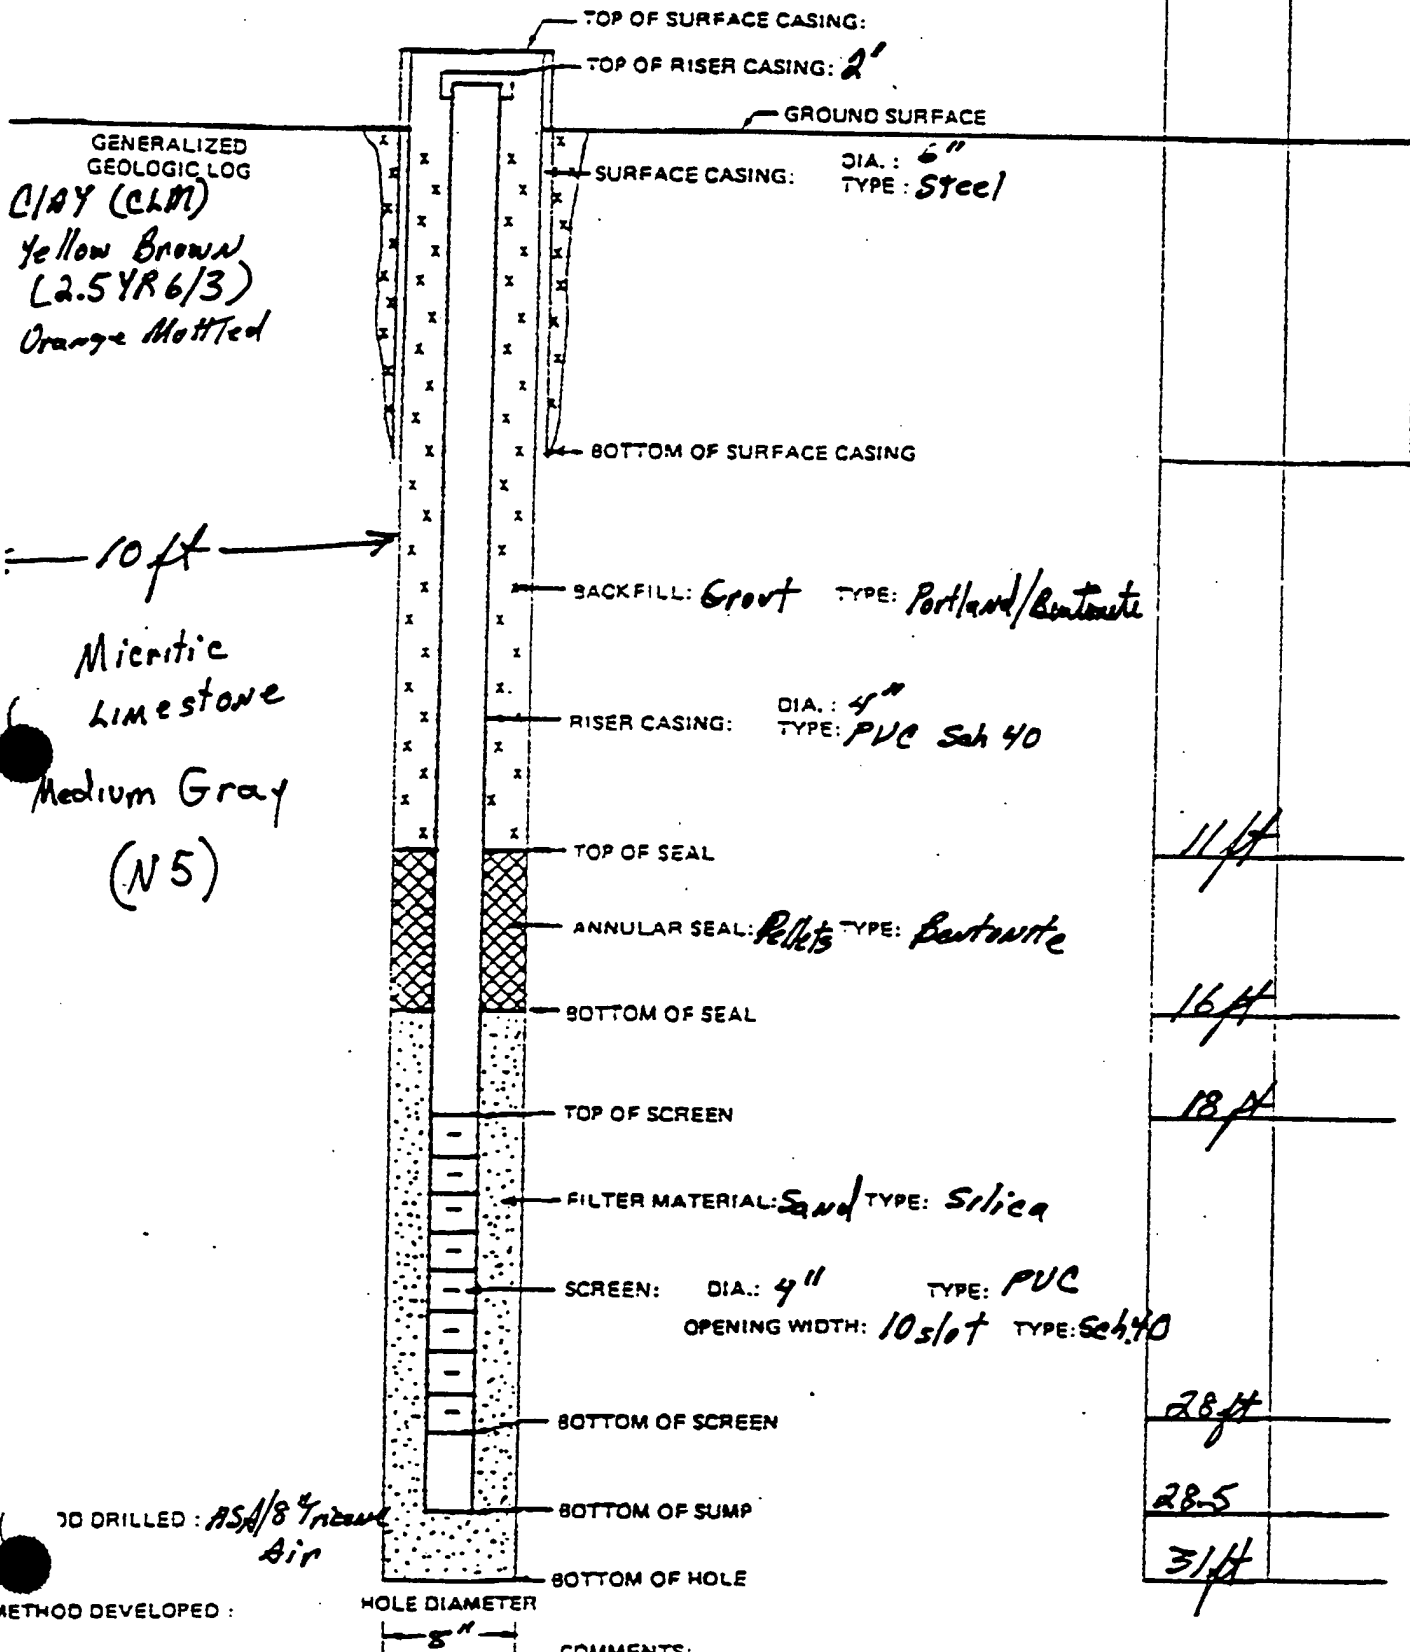 TOP OF SURFACE CASING:
TOP OF RISER CASING: 2"
GROUND SURFACE
GENERALIZED
GEOLOGIC LOG
CLAY (CLM)
Yellow Brown
(2.5 YR 6/3)
Orange Mottled
SURFACE CASING: DIA.: 6"
TYPE: Steel
BOTTOM OF SURFACE CASING
10 ft
BACKFILL: Grout TYPE: Portland/Bentonite
Micritic
Limestone
Medium Gray
(N5)
RISER CASING: DIA.: 4"
TYPE: PVC Sch 40
TOP OF SEAL 11 ft
ANNULAR SEAL: Pellets TYPE: Bentonite
BOTTOM OF SEAL 16 ft
TOP OF SCREEN 18 ft
FILTER MATERIAL: Sand TYPE: Silica
SCREEN: DIA.: 4" TYPE: PVC
OPENING WIDTH: 10 slot TYPE: Sch.40
BOTTOM OF SCREEN 28 ft
BOTTOM OF SUMP 28.5
OD DRILLED: /8" Tricone
Air
BOTTOM OF HOLE 31 ft
METHOD DEVELOPED:
HOLE DIAMETER
8"
COMMENTS: